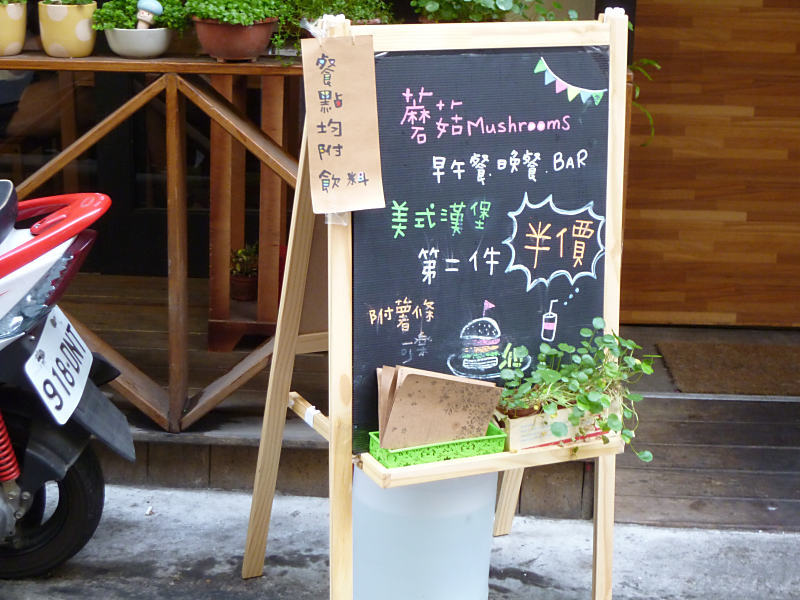 餐點均附飲料
蘑菇Mushrooms
早午餐.晚餐.BAR
美式漢堡
半價
第二件
附薯條
可樂
918-DNT